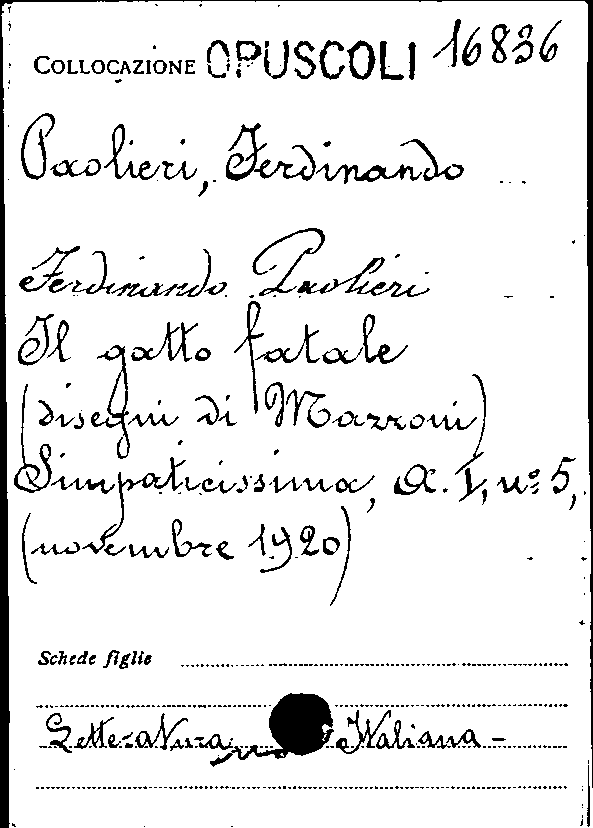 COLLOCAZIONE OPUSCOLI 16836
Paolieri, Ferdinando
Ferdinando Paolieri
Il gatto fatale
(disegni di Mazzoni)
Simpaticissima, A. I, nº 5,
(novembre 1920)
Schede figlie
Letteratura Italiana -